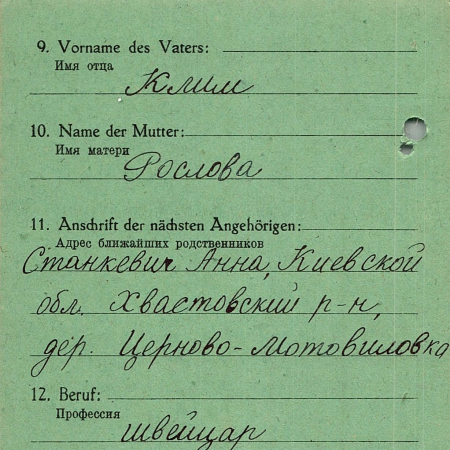 9. Vorname des Vaters:
Имя отца
Клим
10. Name der Mutter:
Имя матери
Рослова
11. Anschrift der nächsten Angehörigen:
Адрес ближайших родственников
Станкевич Анна, Киевской
обл. Хвастовский р-н,
дер. Церново-Мотовиловка
12. Beruf:
Профессия
швейцар